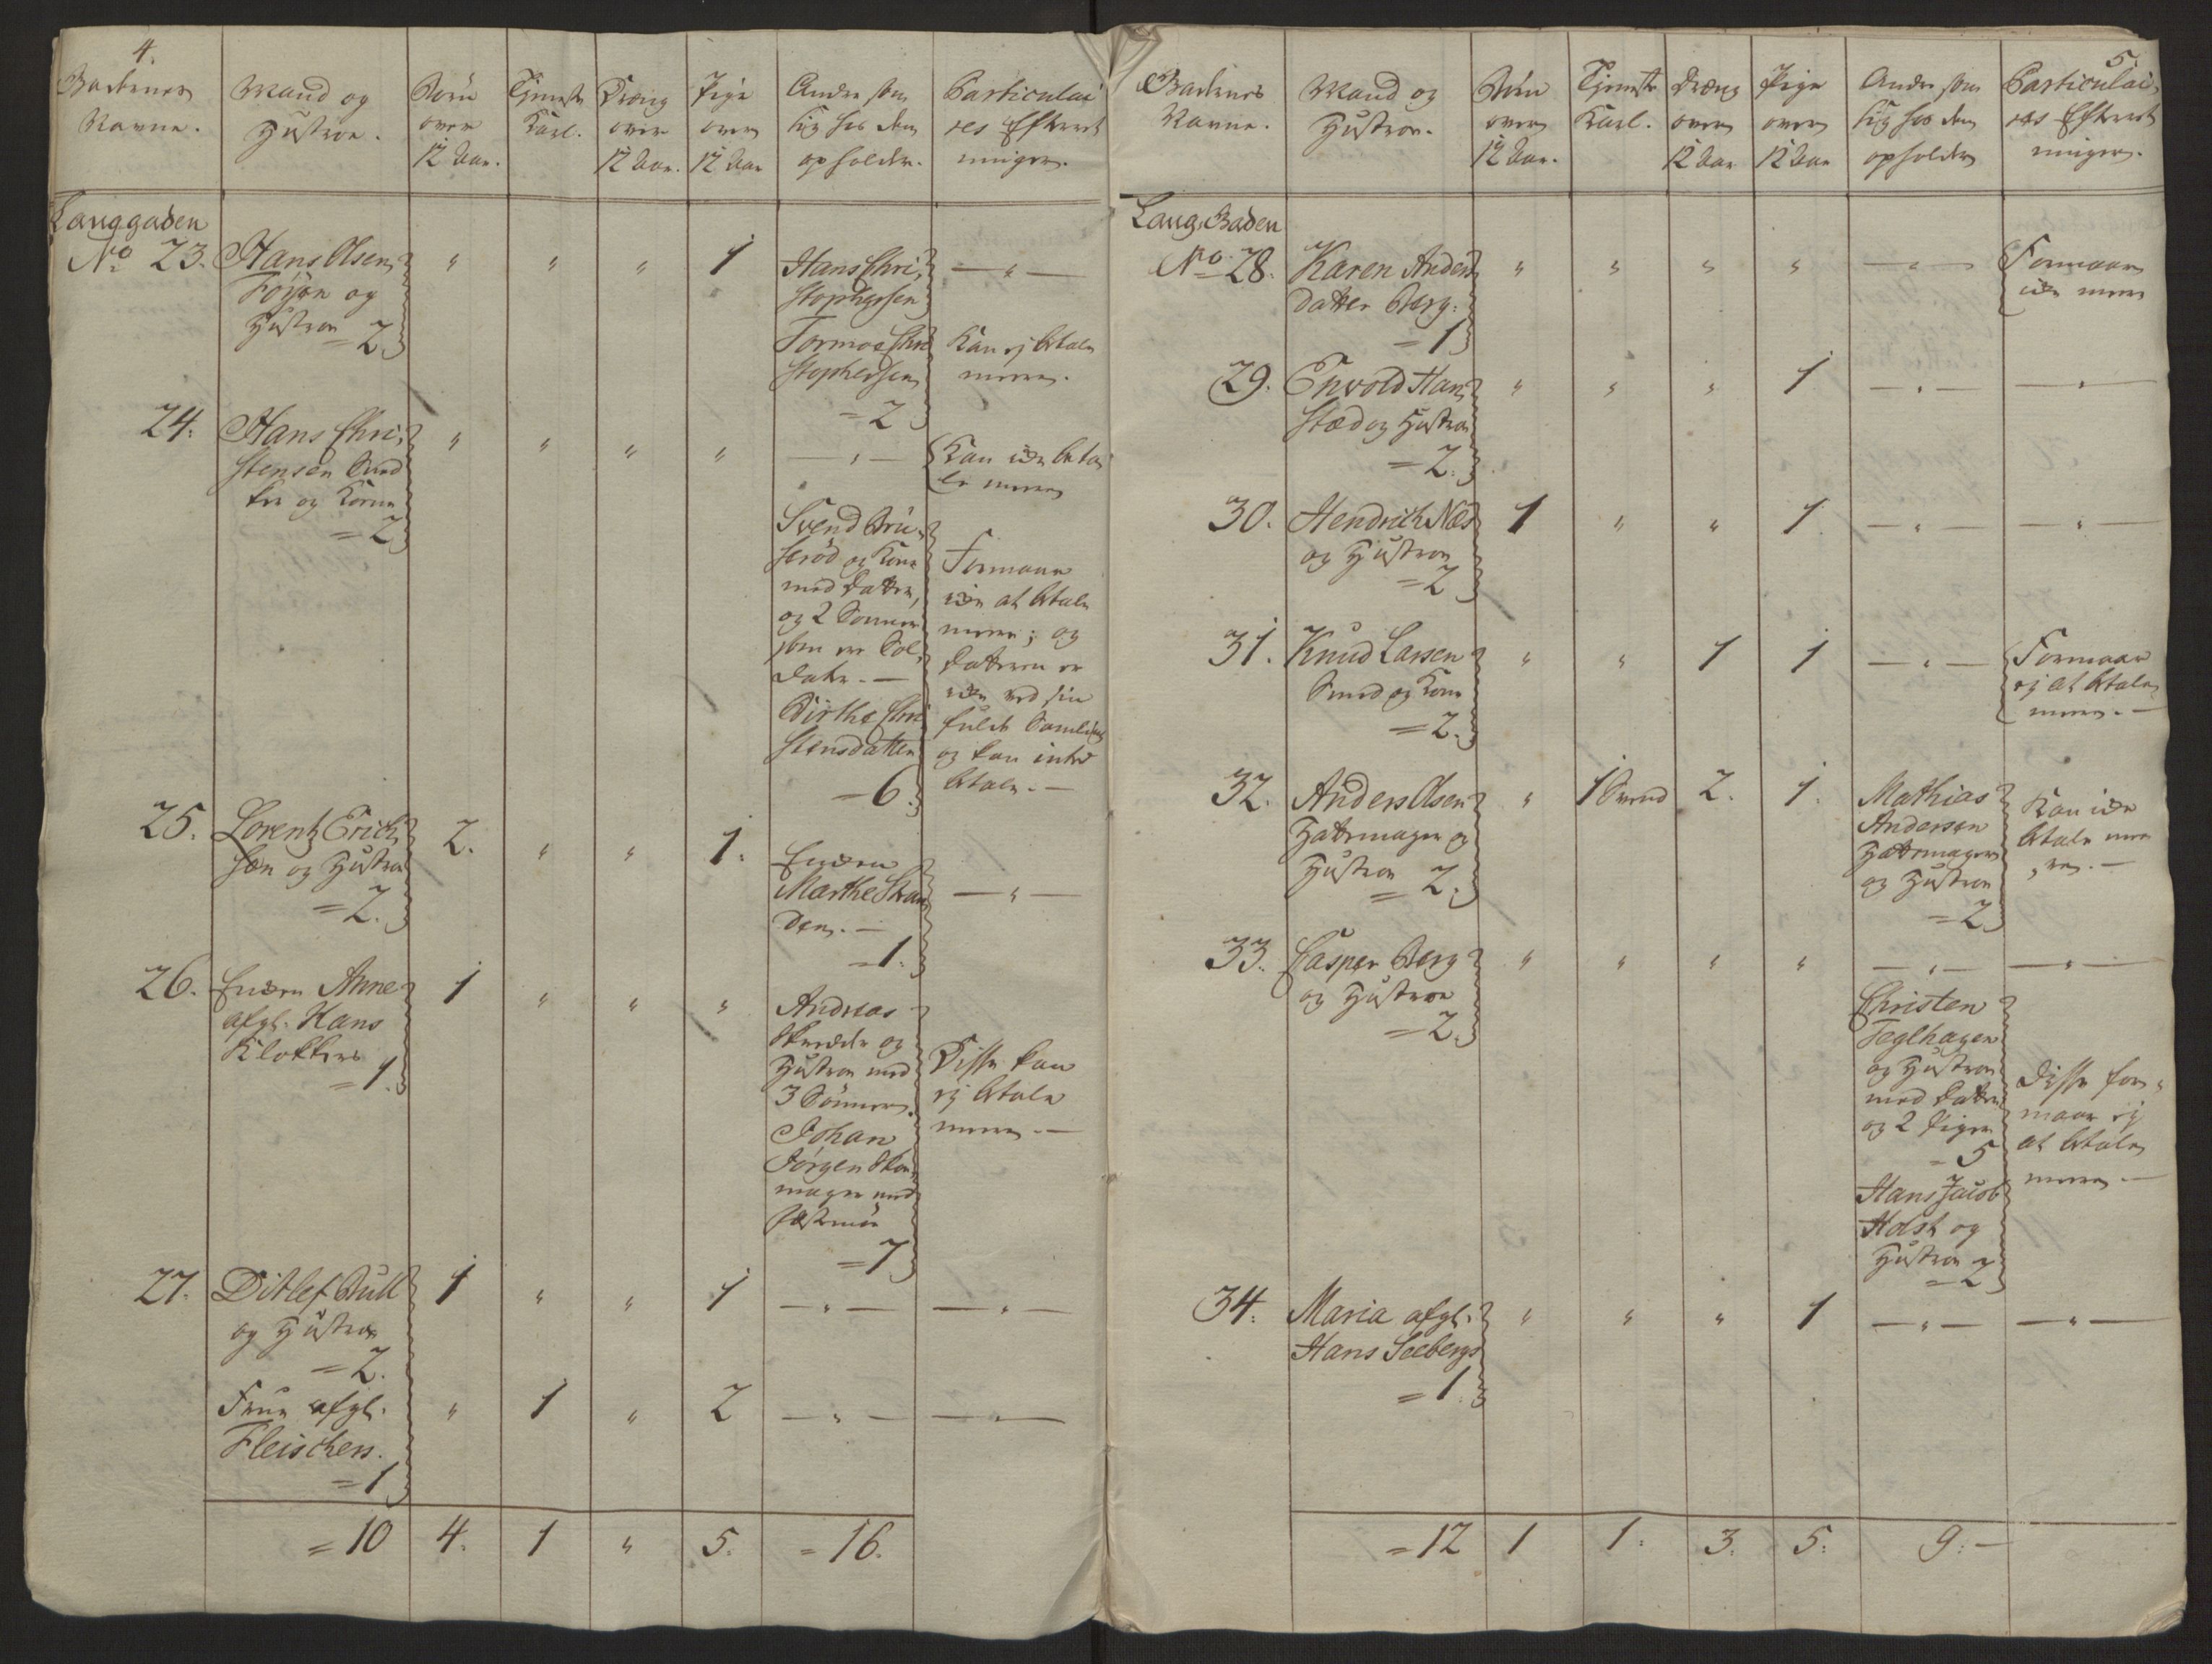 4.
Navne.
Mand og
Hustroe.
Børn
over
12 Aar.
Tjeneste
Karl.
Dreng
over
12 Aar.
Pige
over
12 Aar
Andre som
sig hos dem
opholder.
Particulai
res Efterret
ninger.
Langgaden
No 23.
Hans Olsen
Føyen og
Hustroe
= 2
"
"
"
1
Hans Chri,
stophersen
Tormoe Chri
stophersen
= 2
— " —
Kan ej betale
meere.
24.
Hans Chri,
stensen Smed
og Kone
= 2
"
"
"
"
— " —
Kan icke beta
le meere
Svend Bru,
serød og Kone
med Datter,
og 2 Sønner
som ere Sol,
dater. —
Birthe Chri
stensdatter
= 6.
Formaar
icke at betale
meere; og
Datteren er
icke ved sin
fulde Samling
og kan intet
betale. —
25.
Lorentz Erich,
sen og Hustroe
= 2.
2.
"
"
1.
Encken
Marthe Stran
den. —
= 1.
— " —
26.
Encken Anne
afgl. Hans
Klokkers
= 1.
1
"
"
"
Andreas
Skredder og
Hustroe med
3 Sønner.
Johan
Jørgen Skoe,
mager med
= 7
Disse kan
ej betale
meere. —
27.
Ditlef Bull
og Hustroe
= 2.
1
"
"
1
— " —
— " —
Frue afgl.
Fleischers.
= 1
"
1
"
2
— " —
— " —
= 10
4.
1
"
5.
= 16.
5.
Navne.
Mand og
Hustroe.
Børn
over
12 Aar.
Tjeneste
Karl.
Dreng
over
12 Aar
Pige
over
12 Aar
Andre som
sig hos dem
opholder
Particulai,
res Efterret
ninger.
Lang-Gaden
No 28.
Karen Anders
datter Berg.
= 1
"
"
"
"
— " —
Formaar
icke meere
29.
Envold Han,
sted og Hustroe
= 2.
"
"
"
1
— " —
— " —
30.
Hendrich Næs
og Hustroe
= 2
1
"
"
1
— " —
— " —
31.
Knud Larsen
Smed og Kone
= 2.
"
"
1
1
— " —
Formaar
ej at betale
meere. —
32.
Anders Olsen
Hattemager og
Hustroe
= 2.
"
1 Svend
2.
1.
Mathias
Andersen
Hattemager
og Hustroe
= 2
Kan icke
betale mee
re. —
33.
Casper Berg
og Hustroe
= 2.
"
"
"
"
— " —
— " —
Christen
Teglhagen
og Hustroe
med Datter
og 2 Piger
= 5
Hans Jacob
Holst og
Hustroe
= 2
Disse for,
maar ej
at betale
meere. —
34.
Maria afgl.
Hans Seebergs
= 1.
"
"
"
1
— " —
— " —
= 12
1
1.
3.
5.
9. —